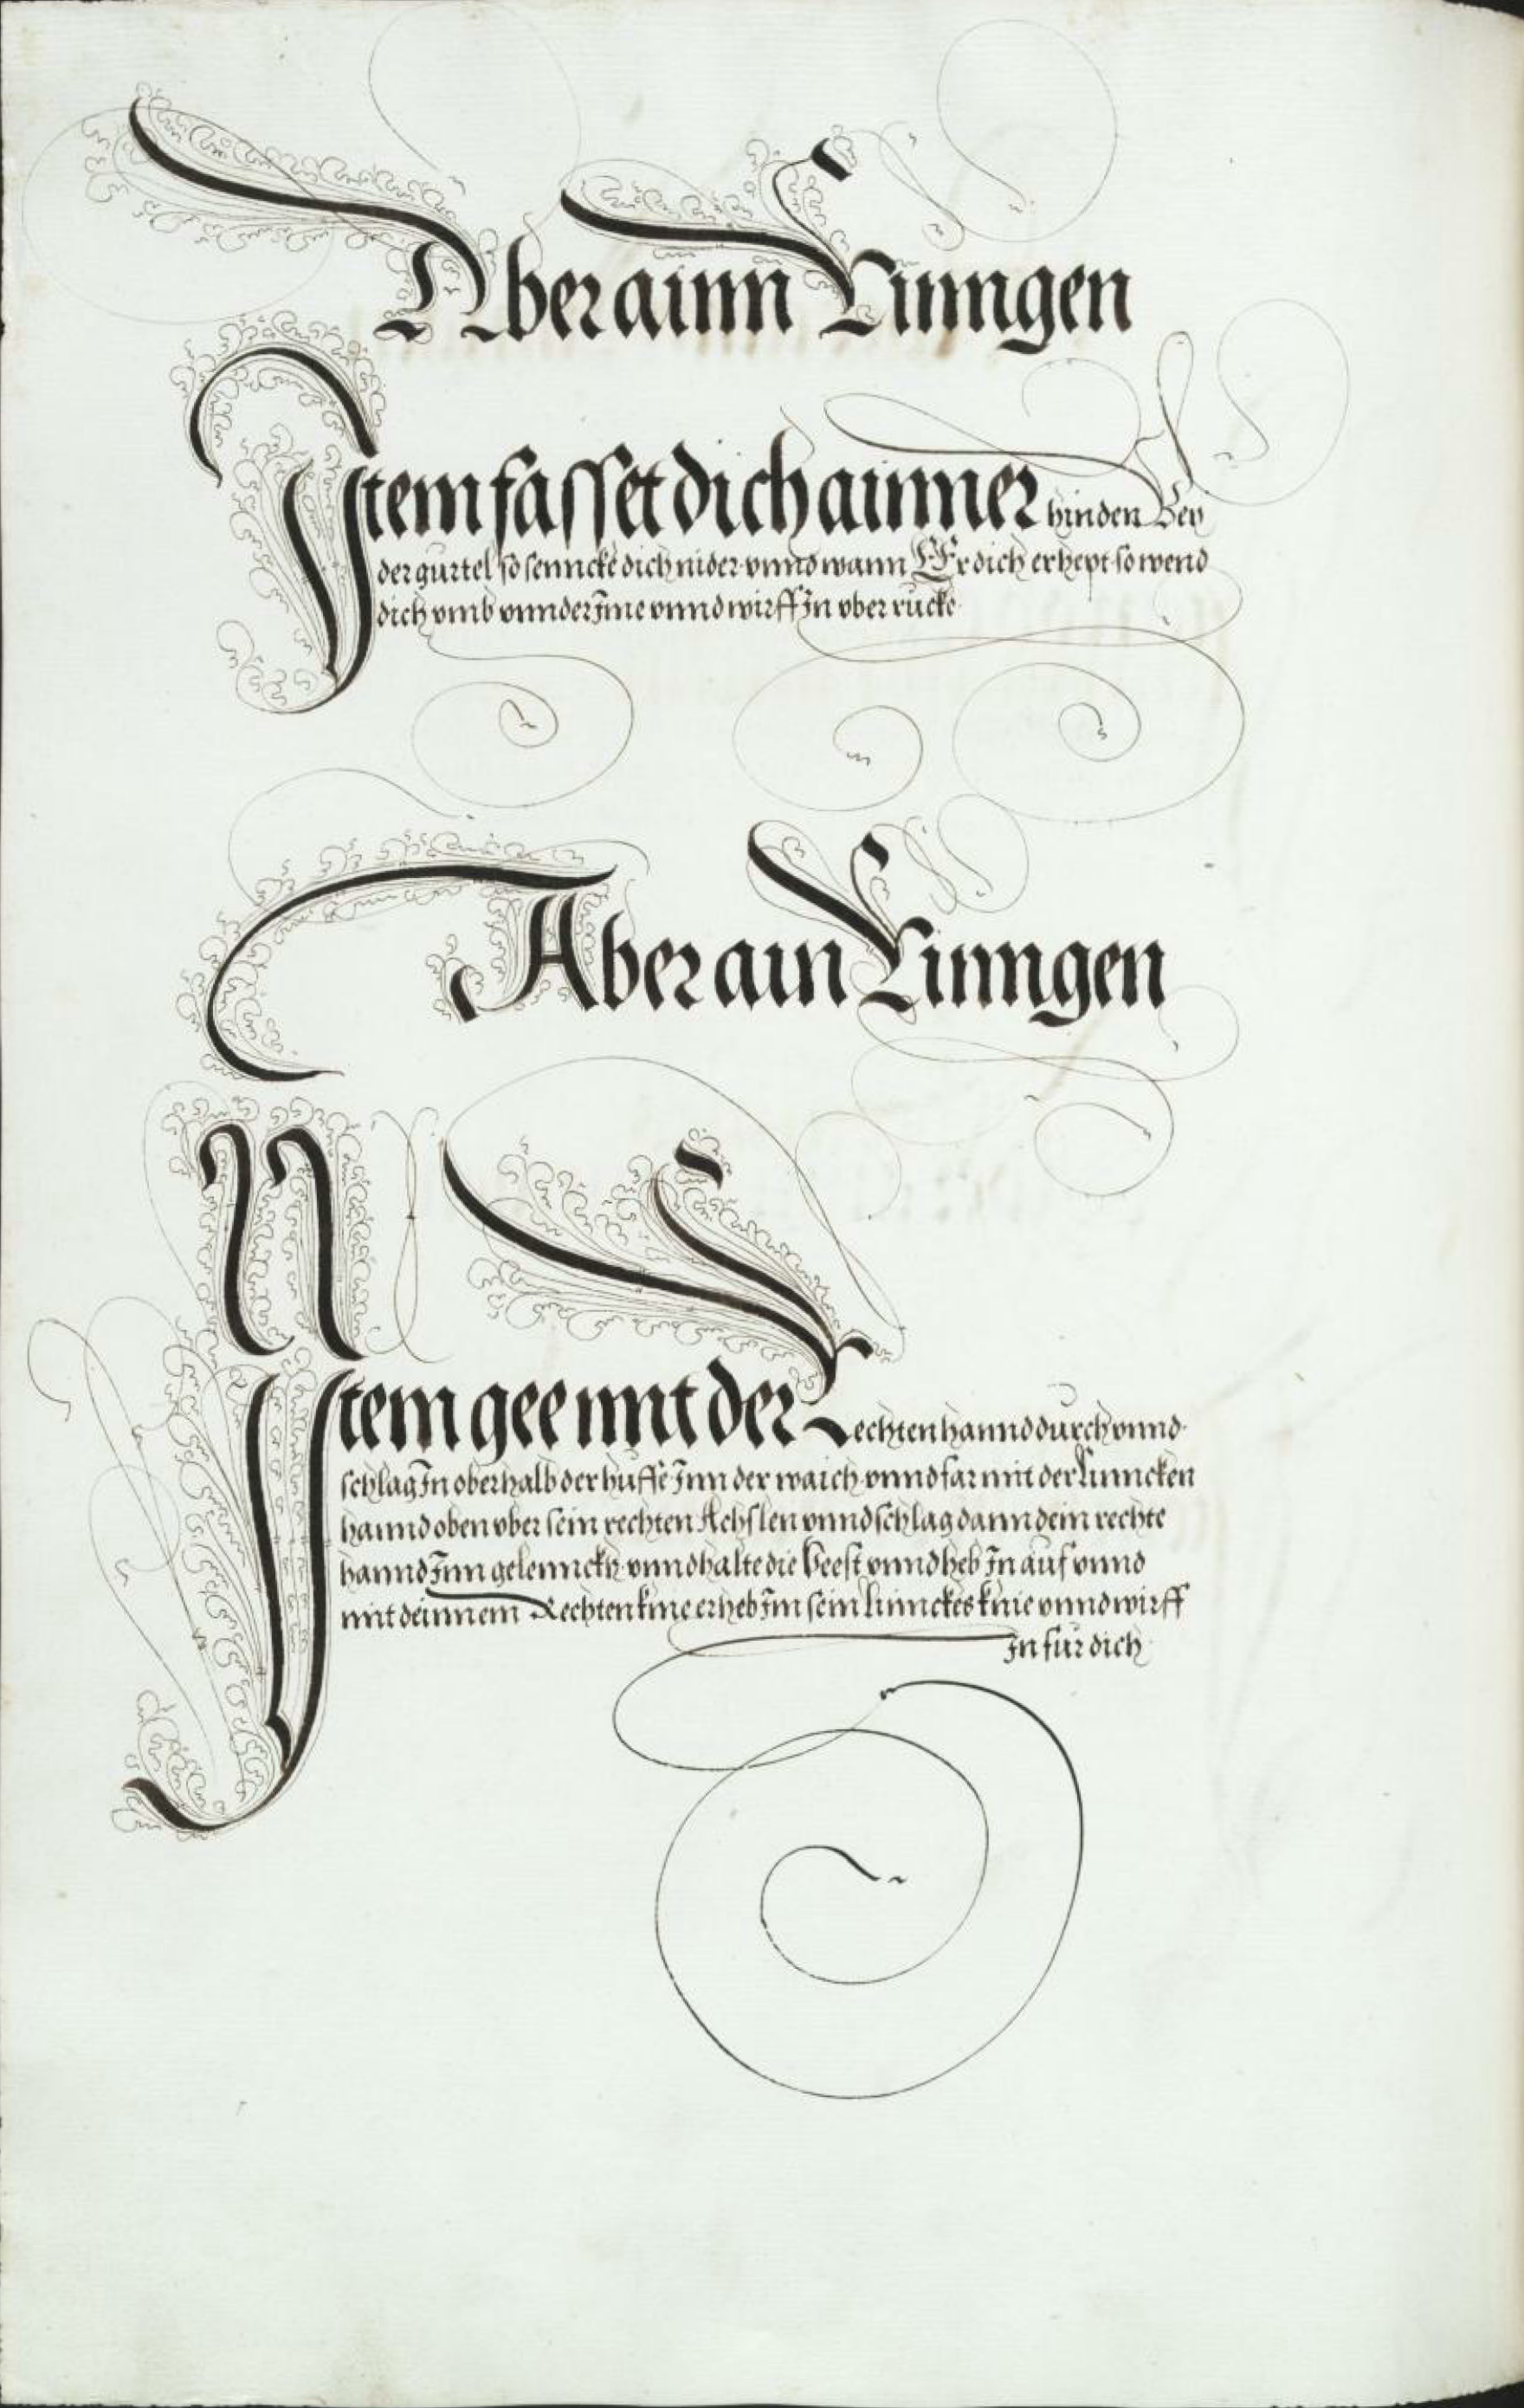 Aber ainn Ringen
Item fasset dich ainner hinden Bey
der gurtel so senncke dich nider vnnd wann Er dich erhept so wend
dich vmb vnnder Ime vnnd wirff In vber rucke
Aber ain Ringen
Item gee mit der Rechten hannd durch vnnd
schlag In oberhalb der huffe Inn der waich vnnd far mit der linncken
hannd oben vber sein rechten Achslen vnnd schlag dann dein rechte
hannd Inn gelennckh vnnd halte die Veest vnnd heb In auf vnnd
mit deinnem Rechten knie erheb Im sein linnckes knie vnnd wirff
In fur dich